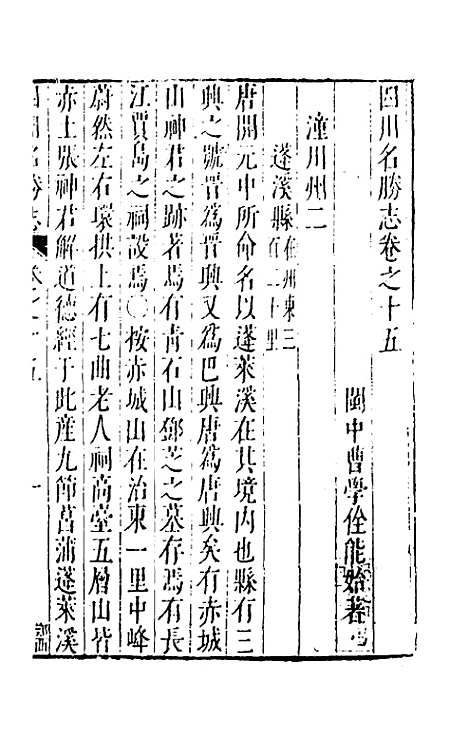 四川名勝志卷之十五
閩中曹學佺能始著
潼川州二
蓬溪縣在州東三百二十里
唐開元中所命名以蓬萊溪在其境内也縣有三
興之號晉爲晉興又爲巴興唐爲唐興矣有赤城
山神君之跡著焉有青石山鄧芝之墓存焉有長
江賈島之祠設焉〇按赤城山在治東一里中峰
蔚然左右環拱上有七曲老人祠高臺五層山皆
赤土張神君解道德經于此産九節菖蒲蓬萊溪
四川名勝志 卷之十五 一